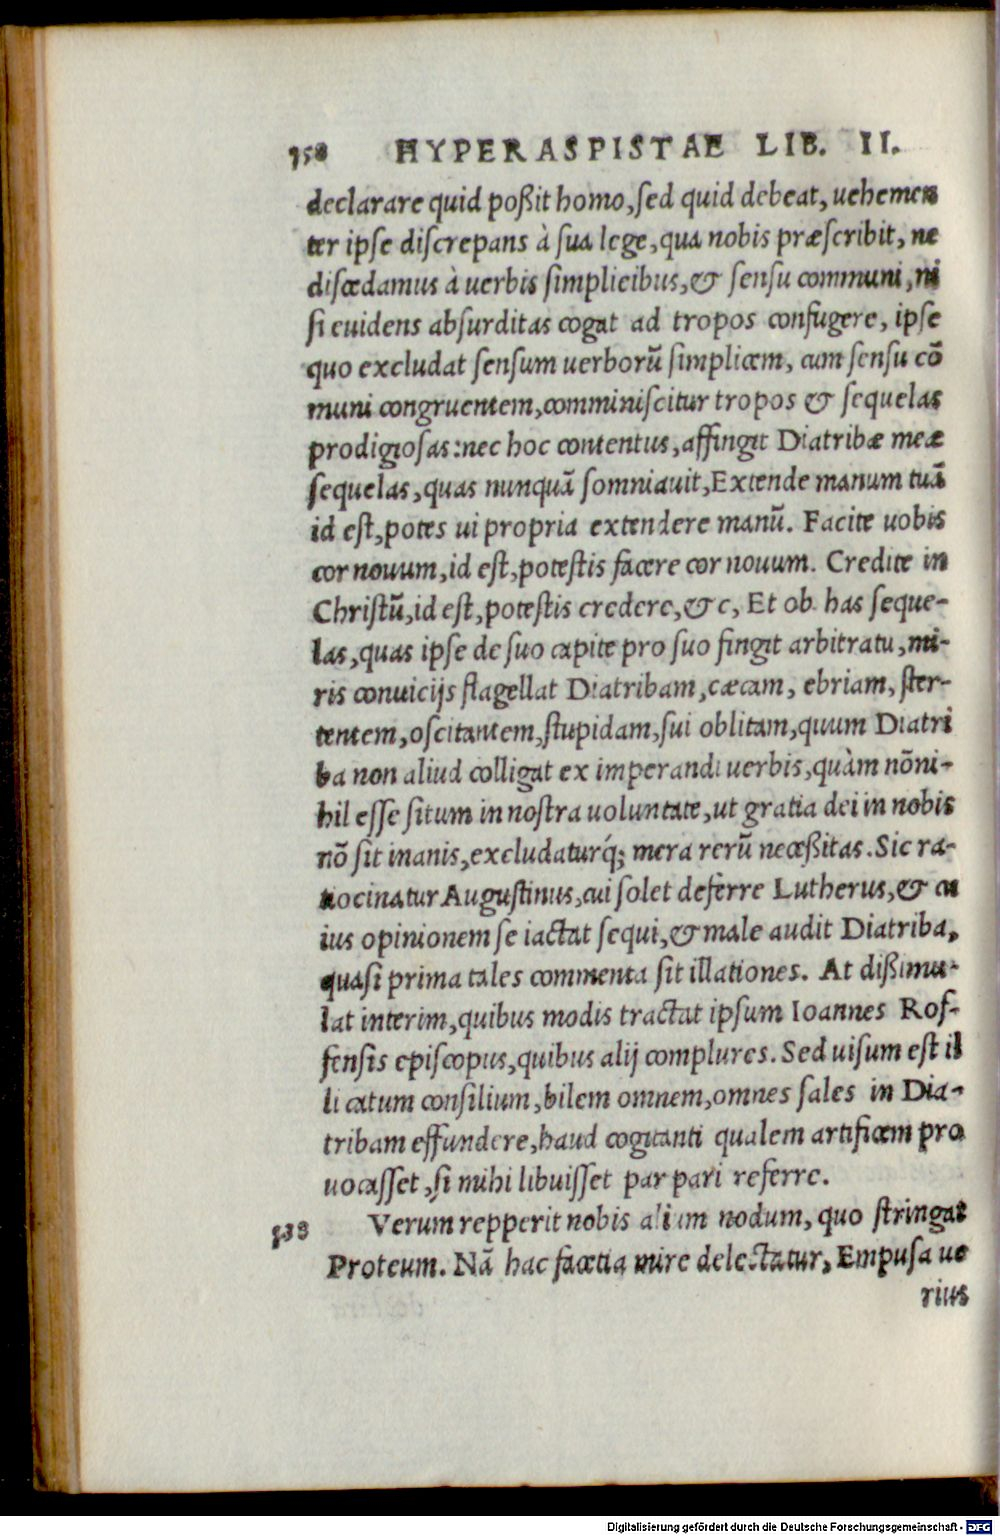 358 HYPERASPISTAE LIB. II.
declarare quid poßit homo, sed quid debeat, uehemen
ter ipse discrepans à sua lege, qua nobis præscribit, ne
discedamus à uerbis simplicibus, & sensu communi, ni
si euidens absurditas cogat ad tropos confugere, ipse
quo excludat sensum uerborũ simplicem, cum sensu cõ
muni congruentem, comminiscitur tropos & sequelas
prodigiosas: nec hoc contentus, affingit Diatribæ meæ
sequelas, quas nunquã somniauit, Extende manum tuã
id est, potes ui propria extendere manũ. Facite uobis
cor nouum, id est, potestis facere cor nouum. Credite in
Christũ, id est, potestis credere, &c, Et ob has seque-
las, quas ipse de suo capite pro suo fingit arbitratu, mi-
ris conuicijs flagellat Diatribam, cæcam, ebriam, ster-
tentem, oscitantem, stupidam, sui oblitam, quum Diatri
ba non aliud colligat ex imperandi uerbis, quàm nõni-
hil esse situm in nostra uoluntate, ut gratia dei in nobis
nõ sit inanis, excludaturq́; mera rerũ neceßitas. Sic ra-
tiocinatur Augustinus, cui solet deferre Lutherus, & cu
ius opinionem se iactat sequi, & male audit Diatriba,
quasi prima tales commenta sit illationes. At dißimu-
lat interim, quibus modis tractat ipsum Ioannes Rof-
fensis episcopus, quibus alij complures. Sed uisum est il
li catum consilium, bilem omnem, omnes sales in Dia-
tribam effundere, haud cogitanti qualem artificem pro
uocasset, si mihi libuisset par pari referre.
Verum repperit nobis alium nodum, quo stringat
Proteum. Nã hac facetia mire delectatur, Empusa ue
rius
Digitalisierung gefördert durch die Deutsche Forschungsgemeinschaft - DFG